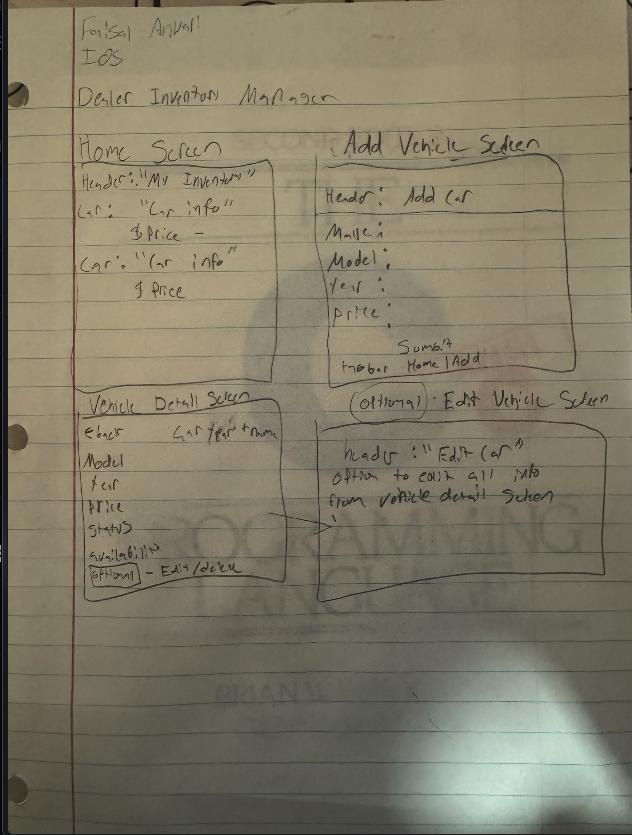 Faisal Anvari
IOS
Dealer Inventory Manager
Home Screen
Header: "My Inventory"
Car: "Car info"
$ Price -
Car: "Car info"
$ Price
Add Vehicle Screen
Header: Add Car
Make:
Model:
Year:
Price:
Sumbit
Home | Add
Vehicle Detail Screen
Car Year + name
Model
Year
Price
Status
availability
- Edit/delete
(optional) - Edit Vehicle Screen
header: "Edit Car"
option to edit all info
from vehicle detail screen
PROGRAMMING
LANGUAGE
BRIAN W